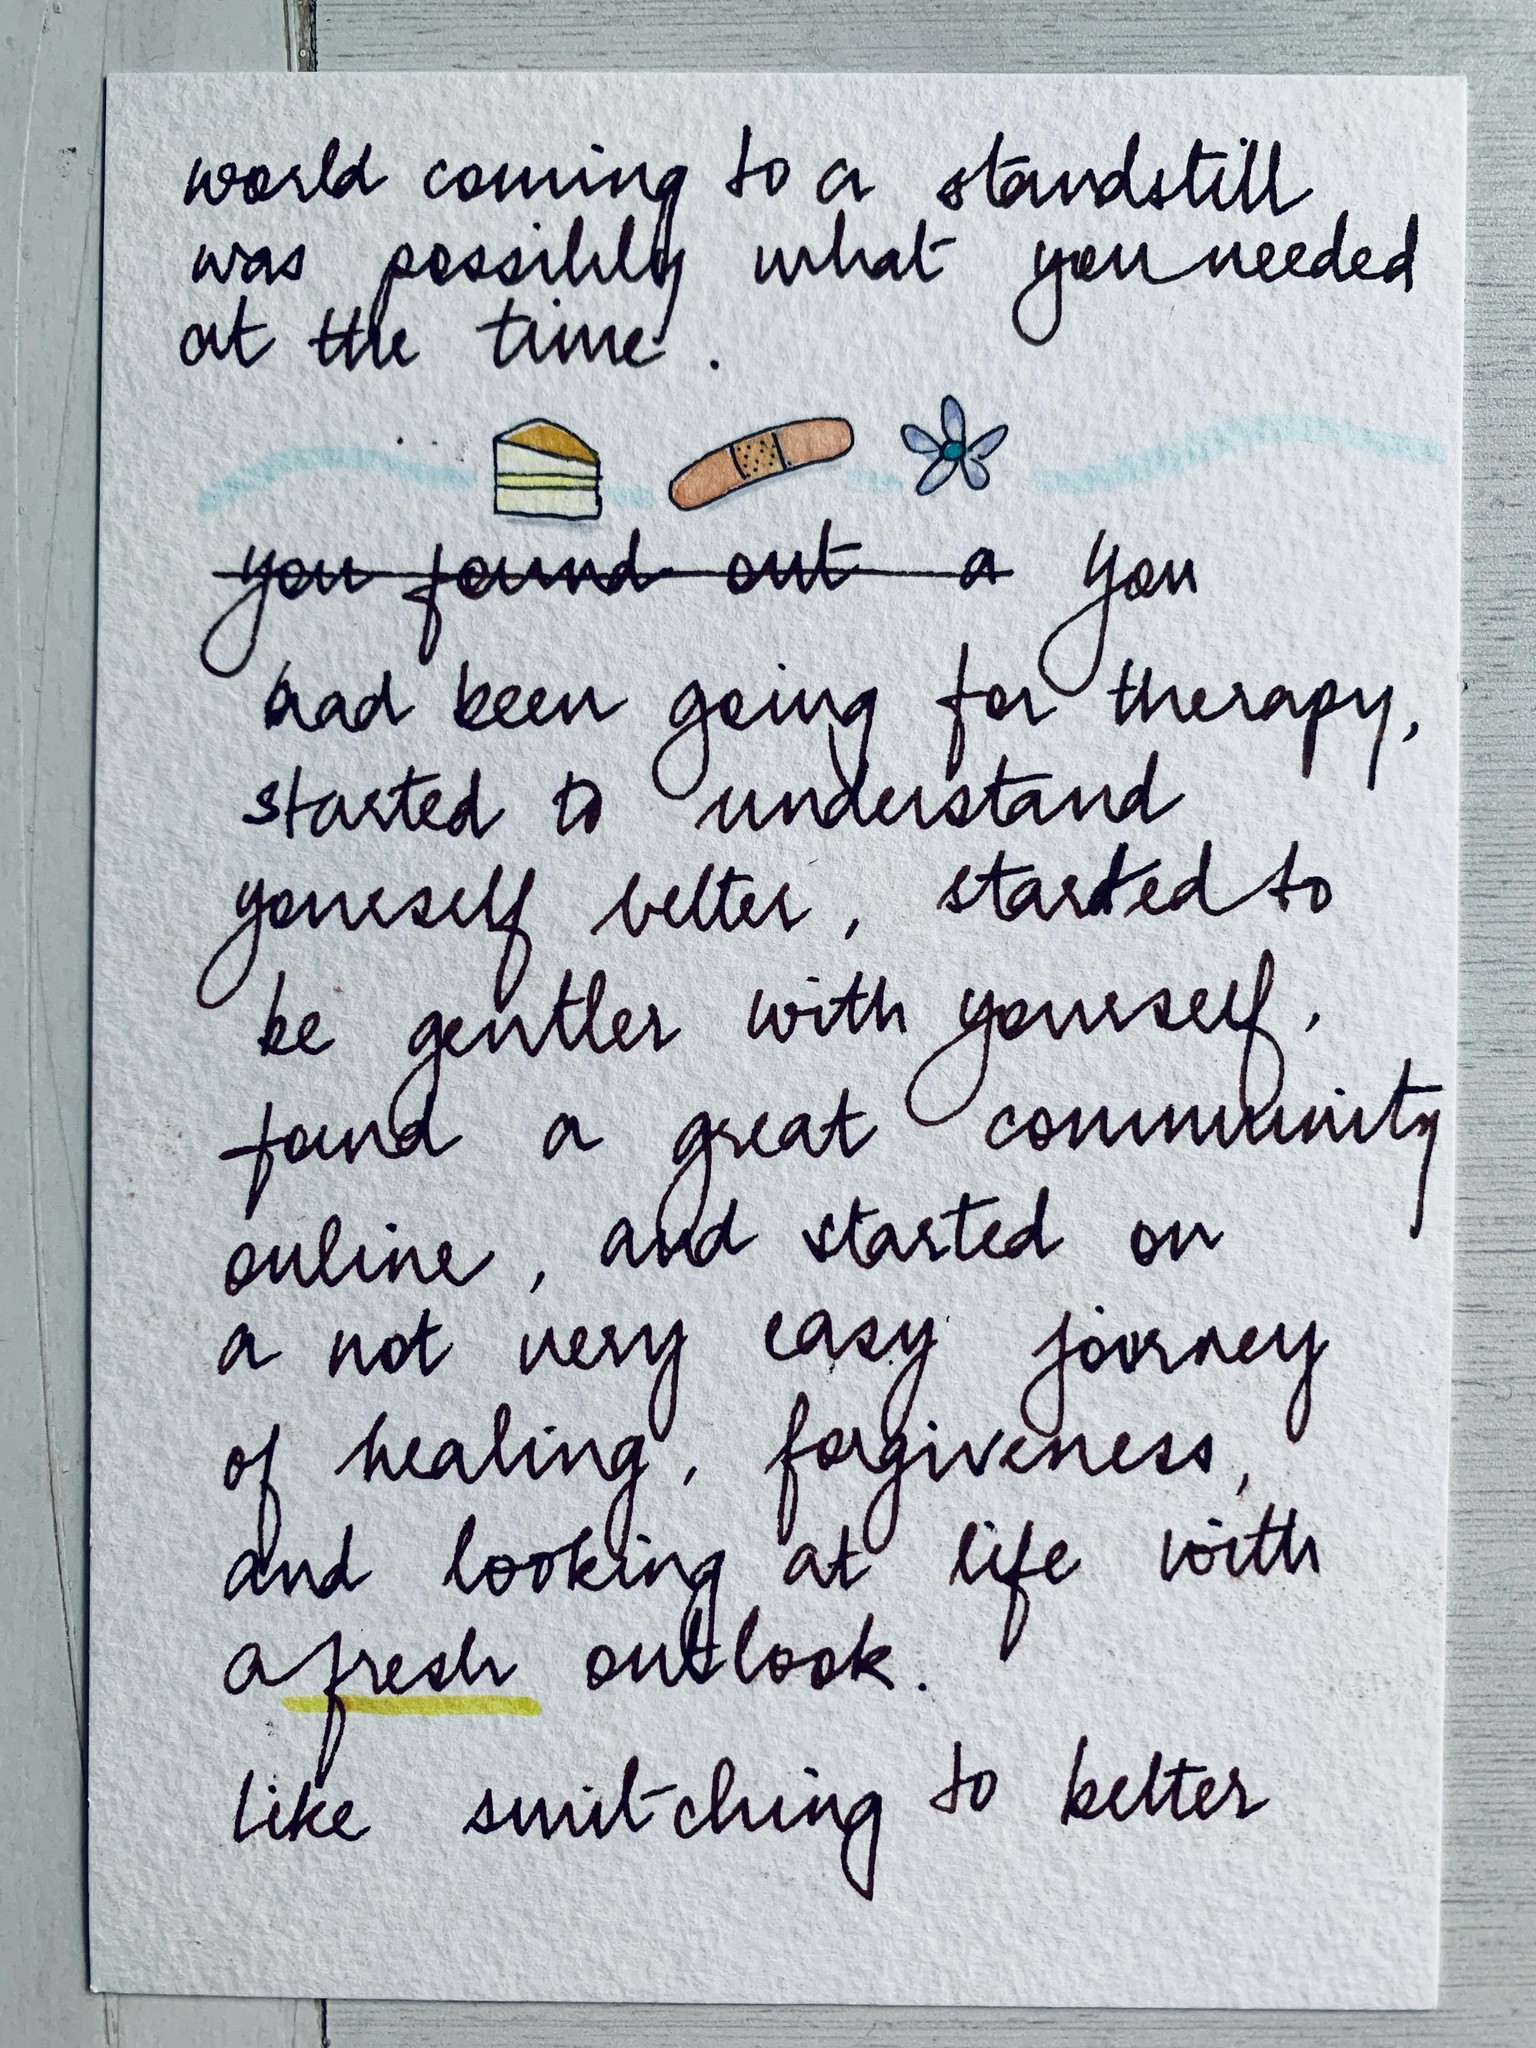 world coming to a standstill
was possibly what you needed
at the time.
you found out a you
had been going for therapy,
started to understand
yourself better, started to
be gentler with yourself,
found a great community
online, and started on
a not very easy journey
of healing, forgiveness,
and looking at life with
a fresh outlook.
like switching to better